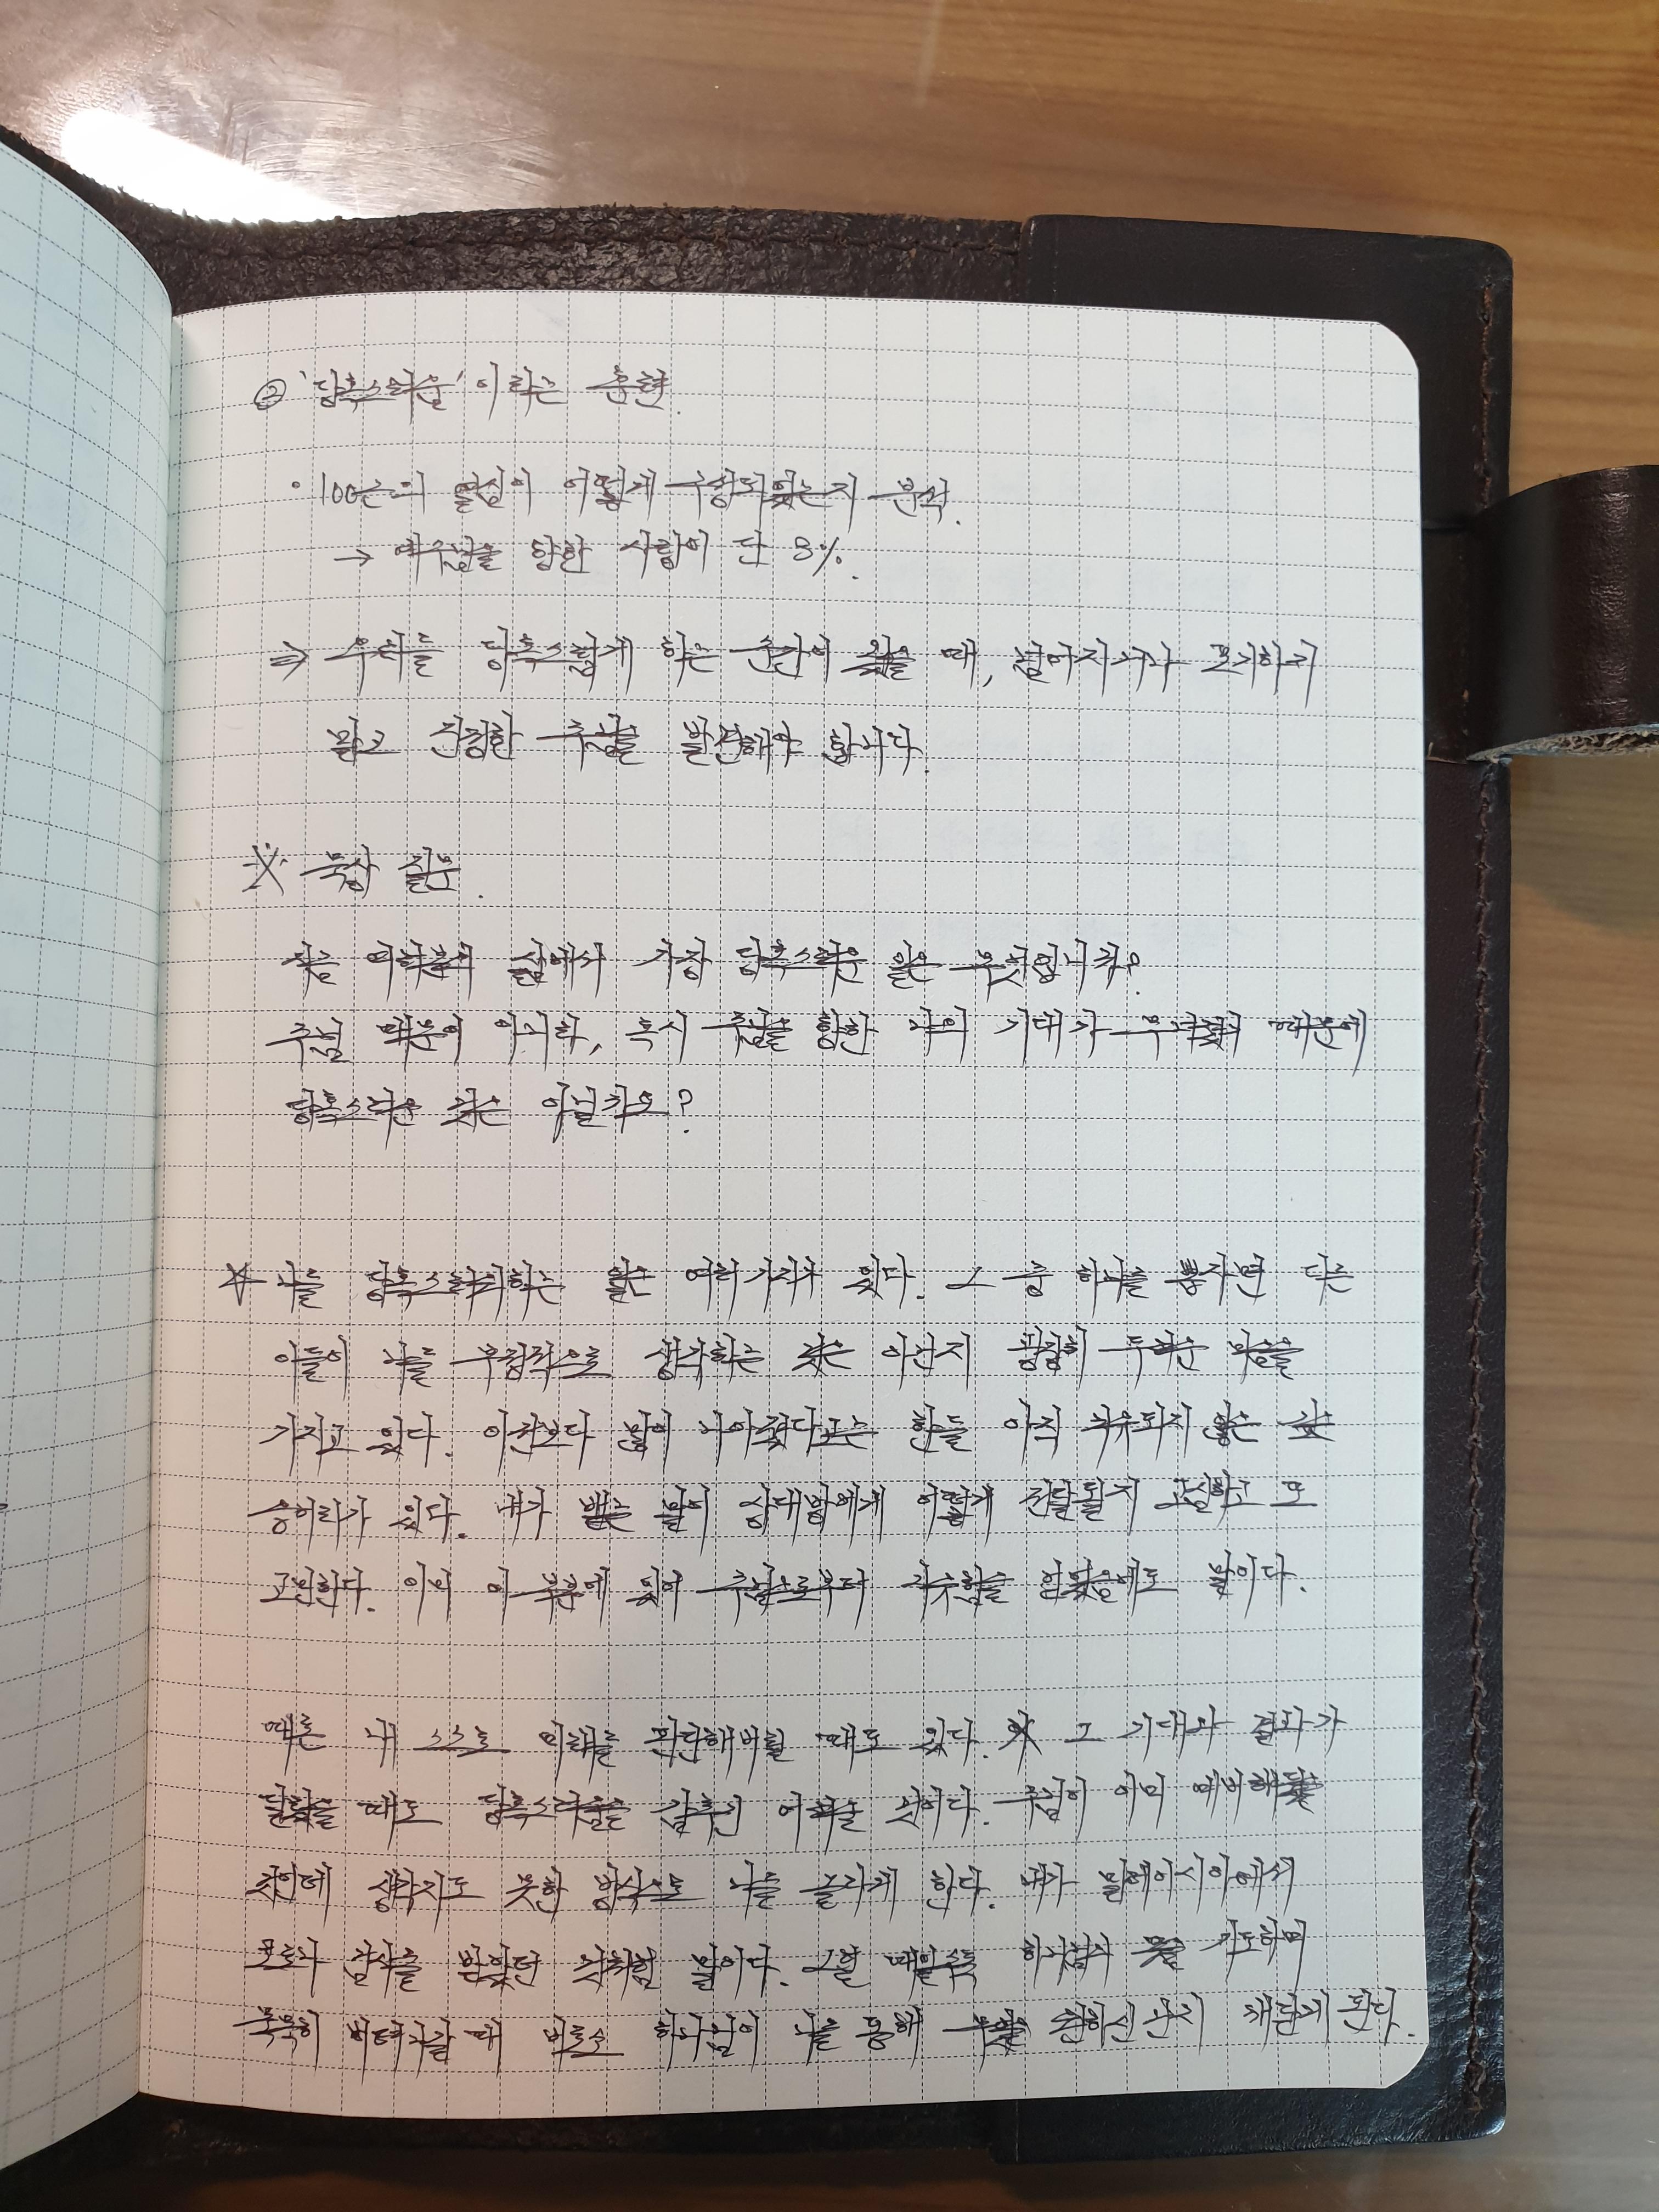 ② '당혹스러운' 이라는 훈련.
· 100근의 열심이 어떻게 구성되있는지 분석.
→ 예수님을 향한 사람이 단 8%.
⇒ 우리를 당혹스럽게 하는 순간이 있을 때, 넘어지거나 포기하지
말고 진정한 주님을 발견해야 합니다.
※ 묵상 질문.
지금 여러분의 삶에서 가장 당혹스러운 일은 무엇입니까?
주님 때문이 아니라, 혹시 주님을 향한 나의 기대가 무너졌기 때문에
당혹스러운 것은 아닐까요?
☆ 나를 당혹스러워하는 일은 여러가지가 있다. 그 중 하나를 뽑자면 다른
이들이 나를 부정적으로 생각하는 것은 아닌지 굉장히 두려운 마음을
가지고 있다. 이전보다 많이 나아졌다고는 한들 아직 치유되지 않은 것
응어리가 있다. 내가 뱉는 말이 상대방에게 어떻게 전달될지 고심하고 또
고민한다. 이미 이 부분에 있어 주님으로부터 깨우침을 얻었음에도 말이다.
때론 내 스스로 미래를 판단해버릴 때도 있다. 그 기대와 결과가
달랐을 때도 당혹스러움을 감추진 어려울 것이다. 주님이 이미 예비해뒀을
것인데 생각지도 못한 방식으로 나를 놀라게 한다. 내가 말레이시아에서
코로나 검사를 받았던 것처럼 말이다. 그럴 때일수록 하나님께 무릎 기도하며
묵묵히 버텨나갈 때 비로소 하나님이 나를 통해 무엇을 원하신 건지 깨닫게 된다.